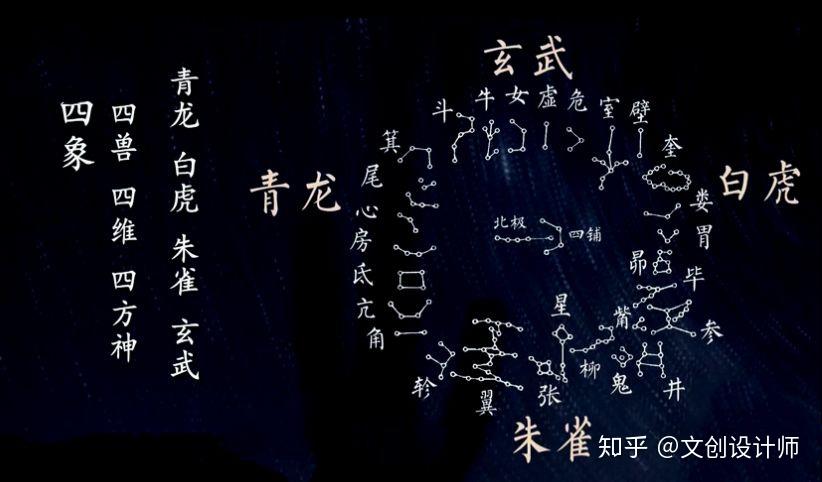 四象
四兽 四维 四方神
青龙 白虎 朱雀 玄武
玄武
斗
牛
女
虚
危
室
壁
箕
奎
尾
青龙
白虎
心
娄
房
北极
四铺
胃
氐
昴
毕
亢
星
觜
参
角
轸
翼
张
柳
鬼
井
朱雀
知乎 @文创设计师